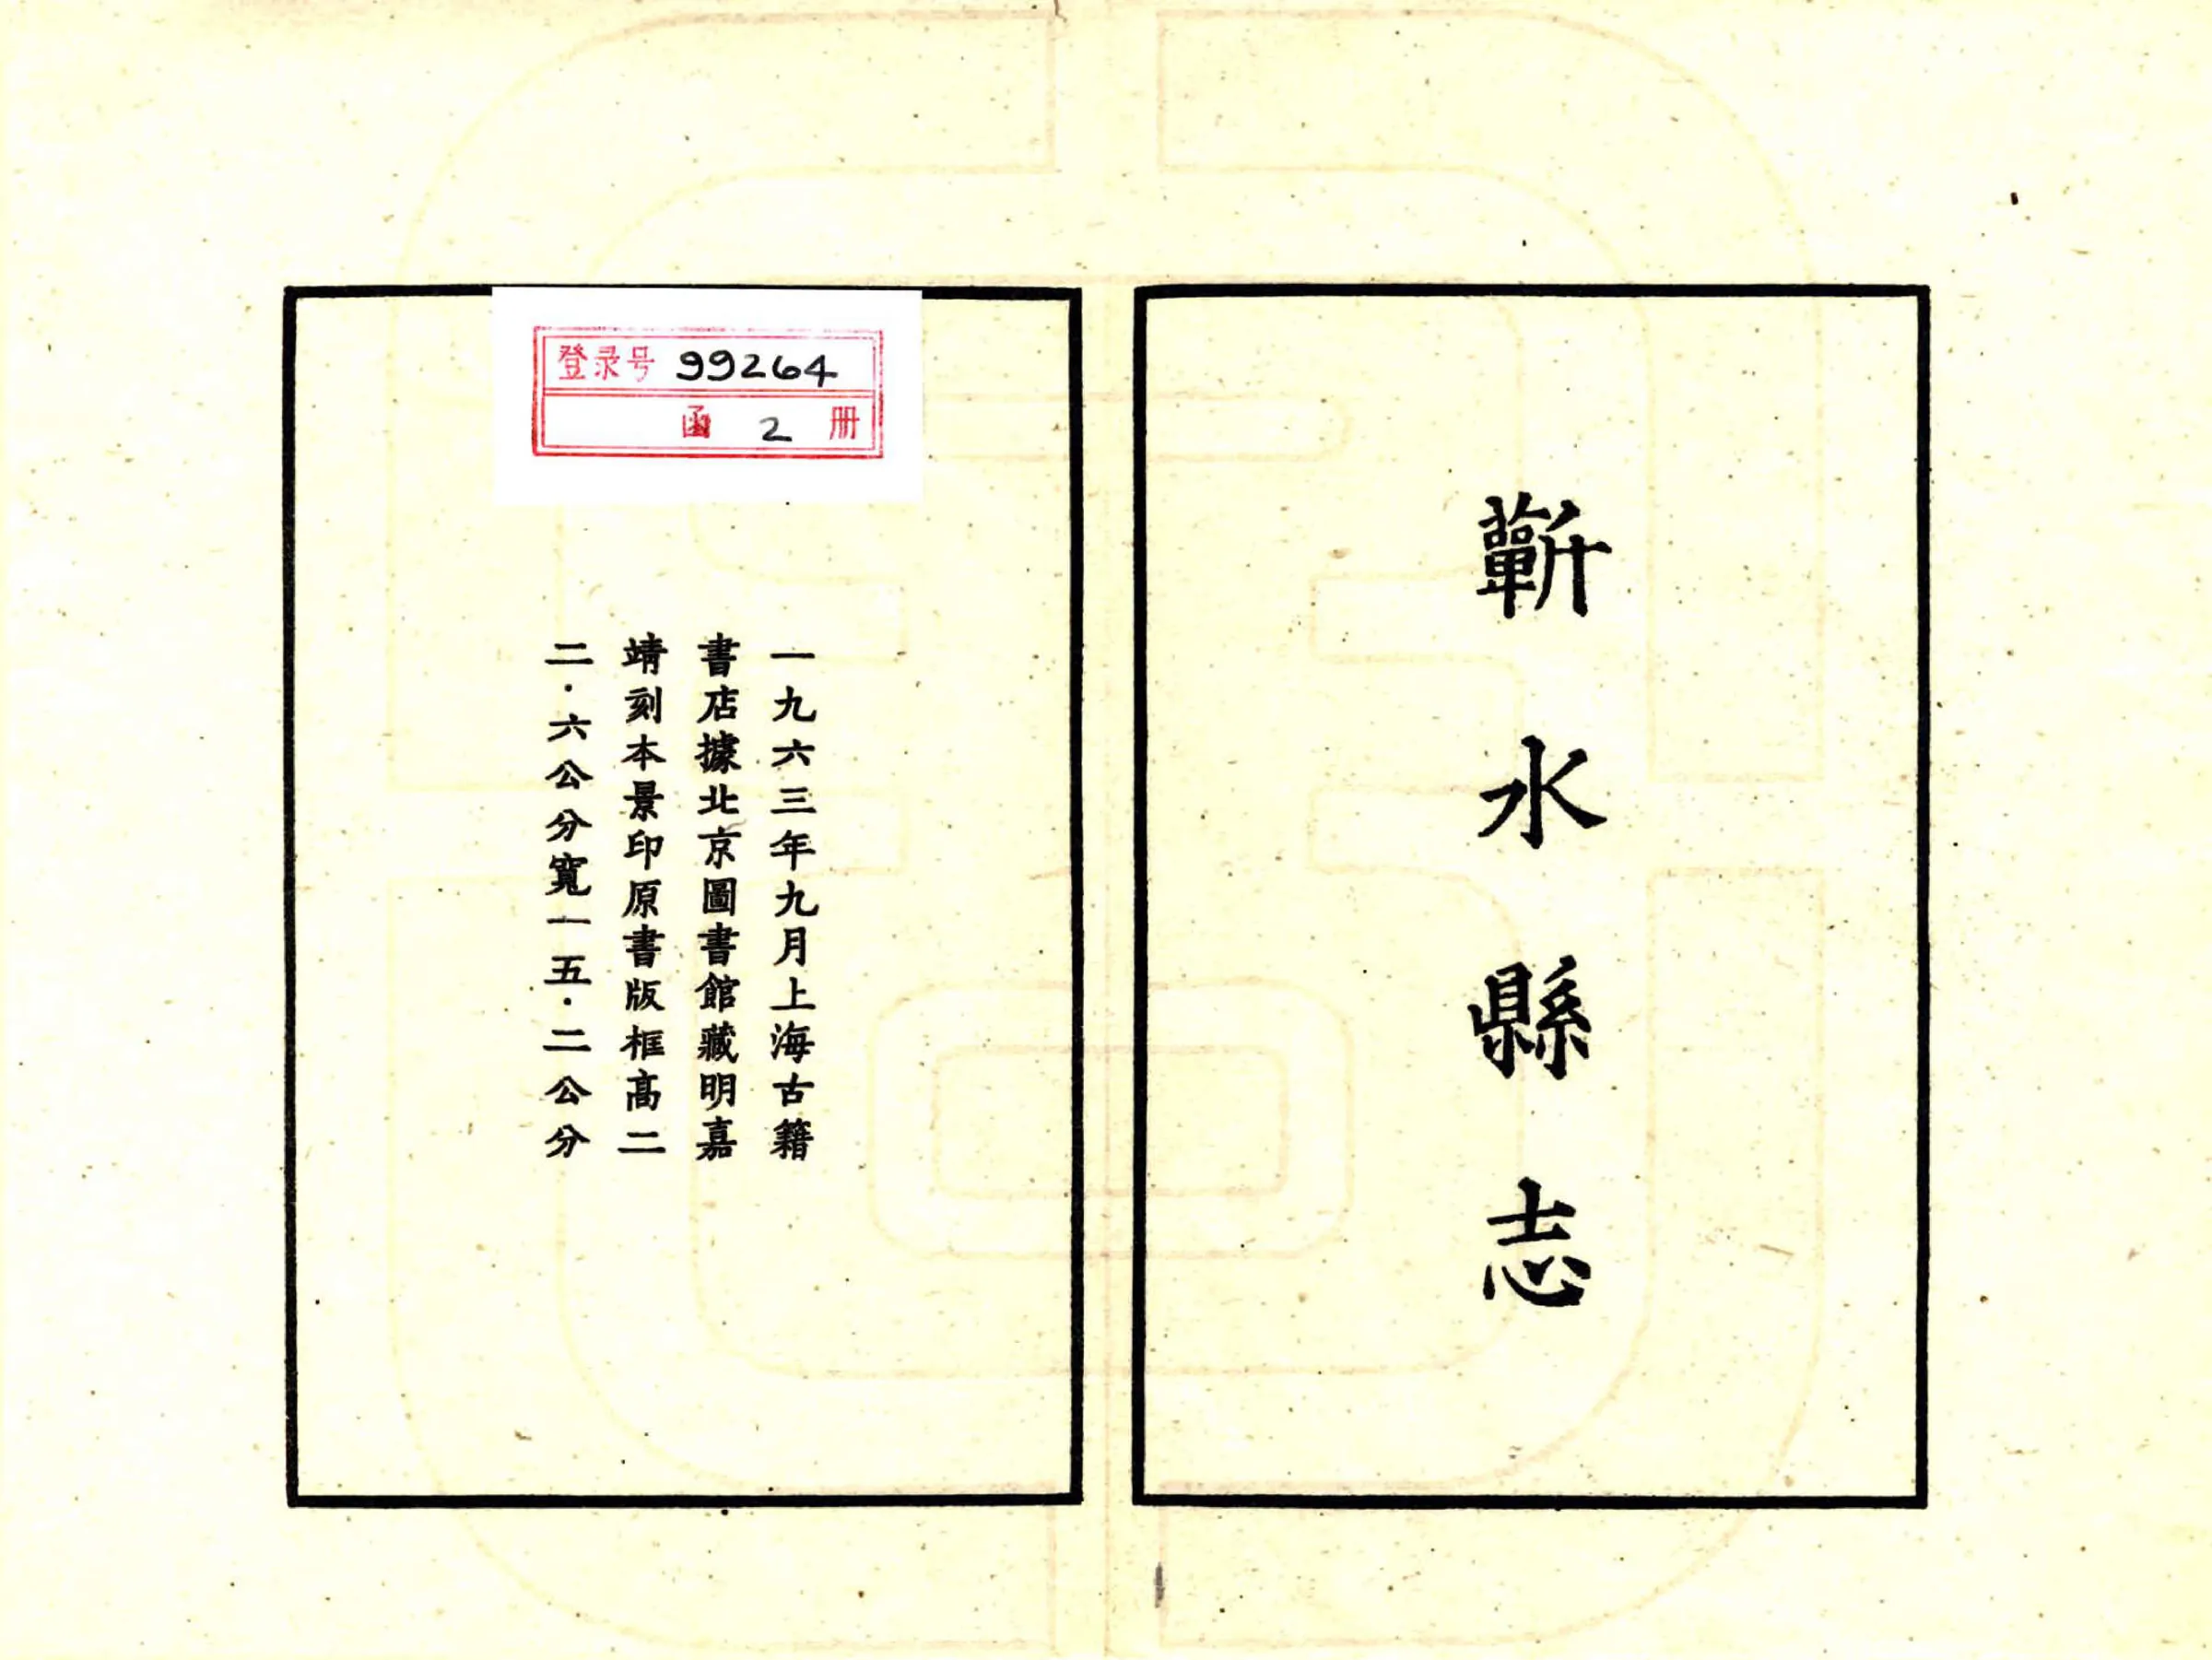 蘄水縣志
登录号 99264
函 2 册
一九六三年九月上海古籍
書店據北京圖書館藏明嘉
靖刻本景印原書版框高二
二·六公分寬一五·二公分